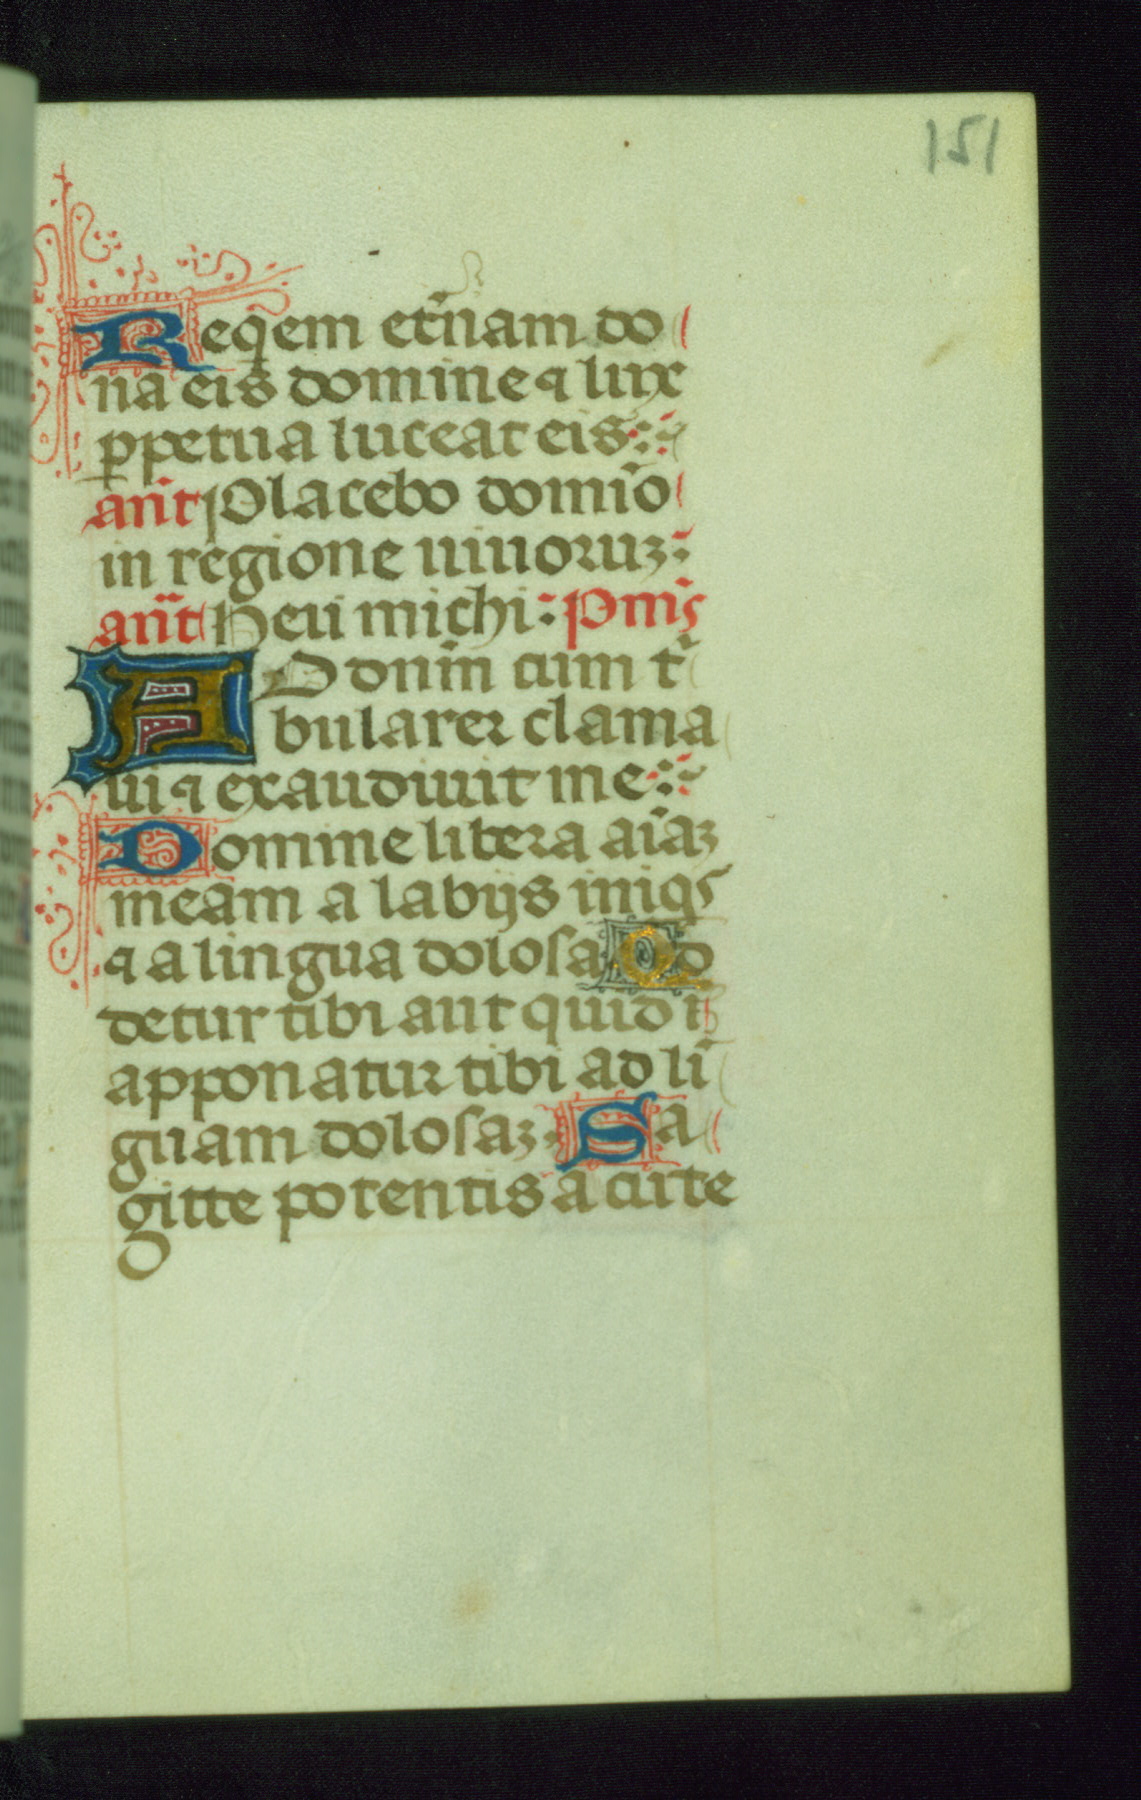 151
Reqem et̃nam do
na eis domine ⁊ lux
ꝑpetua luceat eis:
an̄t Placebo domĩo
in regione uiuoruꝫ:
an̄t Heu michi: pm̃s
AD dnm̄ cum t̃
bularer clama
ui ⁊ exaudiuit me:
Domine libera aĩaꝫ
meam a labijs iniqs
⁊ a lingua dolosa Qd
detur tibi aut quid
apponatur tibi ad li̅
guam dolosaꝫ. Sa
gitte potentis acute